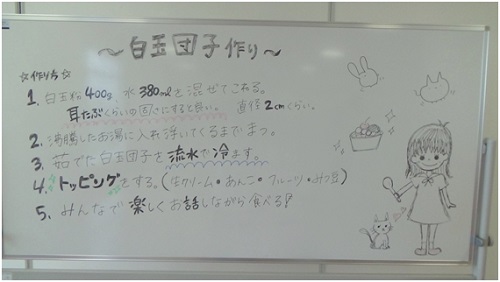 ～白玉団子作り～
☆作り方☆
1. 白玉粉400g 水380mlを混ぜてこねる。
耳たぶくらいの固さにすると良い。 直径2cmくらい。
2. 沸騰したお湯に入れ浮いてくるまでまつ。
3. 茹でた白玉団子を流水で冷ます。
4. トッピングをする。(生クリーム・あんこ・フルーツ・みつ豆)
5. みんなで楽しくお話しながら食べる!